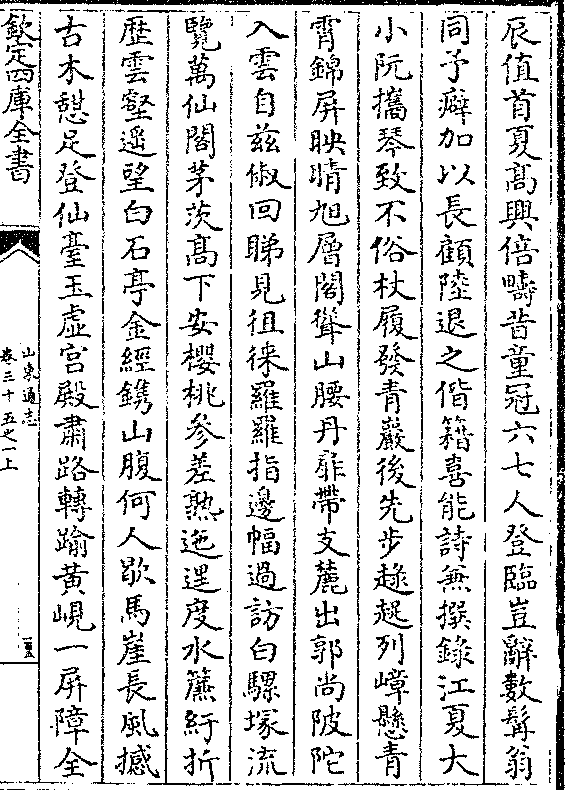 辰值首夏髙興倍疇昔童冠六七人登臨豈辭數髯翁
同予癖加以長顧陸退之偕籍喜能詩兼撰錄江夏大
小阮攜琴致不俗杖履發青巖後先步趢趗列嶂懸青
霄錦屏映晴旭層閣聳山腰丹扉帶支麓出郭尚陂陀
入雲自兹俶回睇見徂徠羅羅指邊幅過訪白騾塚流
覽萬仙閣茅茨髙下安櫻桃參差熟迤逕度水簾紆折
歴雲壑遥望白石亭金經鐫山腹何人歇馬崖長風撼
古木憇足登仙臺玉虛宫殿肅路轉踰黄峴一屏障全
欽定四庫全書
山東通志
卷三十五之一上